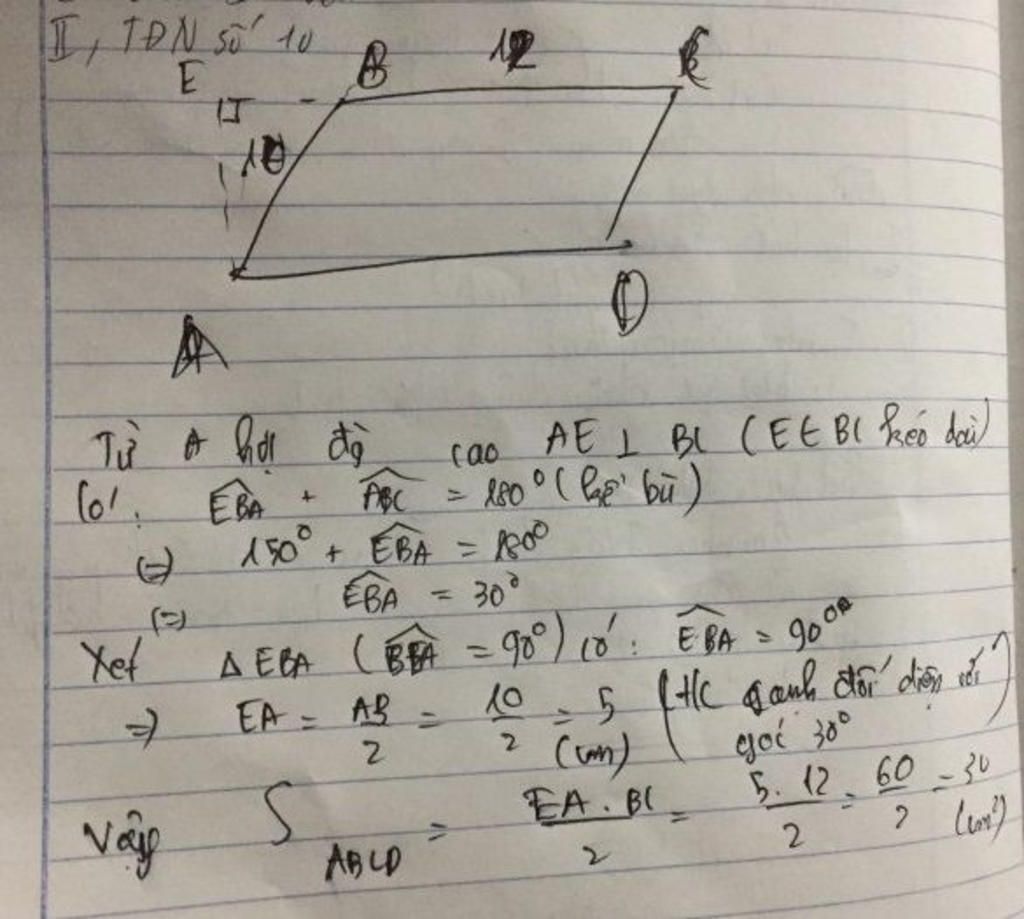 II, TĐN số 10
E B 12 C
10
A D
Từ A hạ đg cao AE ⊥ BC (E ∈ BC kéo dài)
Có: EBA + ABC = 180° (kề bù)
(=) 150° + EBA = 180°
(=) EBA = 30°
Xét Δ EBA (BEA = 90°) có: EBA = 90°
=> EA = AB/2 = 10/2 = 5 (cm) (t/c cạnh đối diện với góc 30°)
Vậy S ABCD = EA . BC / 2 = 5 . 12 / 2 = 60/2 = 30 (cm²)